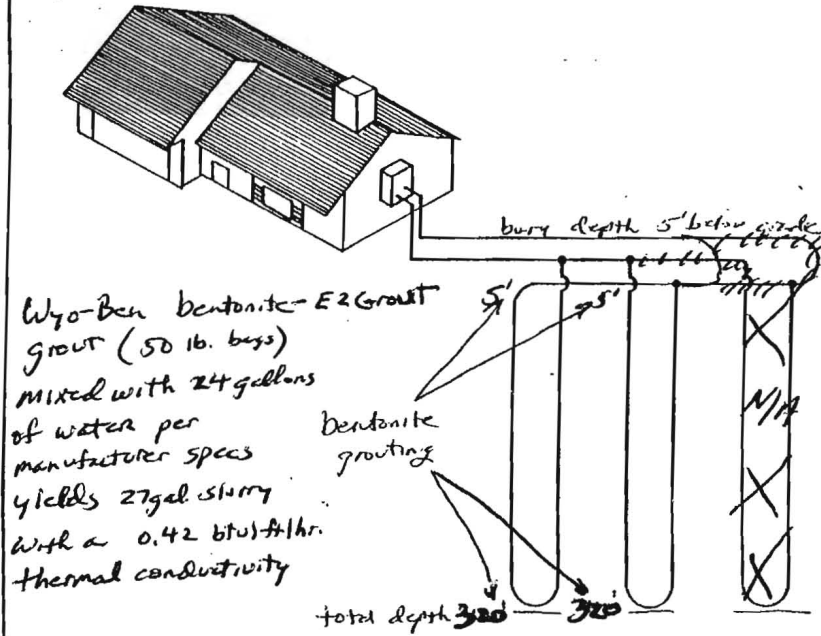 bury depth 5' below grade
Wyo-Ben bentonite - EZ Grout
grout (50 lb. bags)
mixed with 24 gallons
of water per
manufacturer specs
yields 27 gal slurry
with a 0.42 btu/ft/hr.
thermal conductivity
5'
5'
bentonite
grouting
N/A
total depth 320' 320'